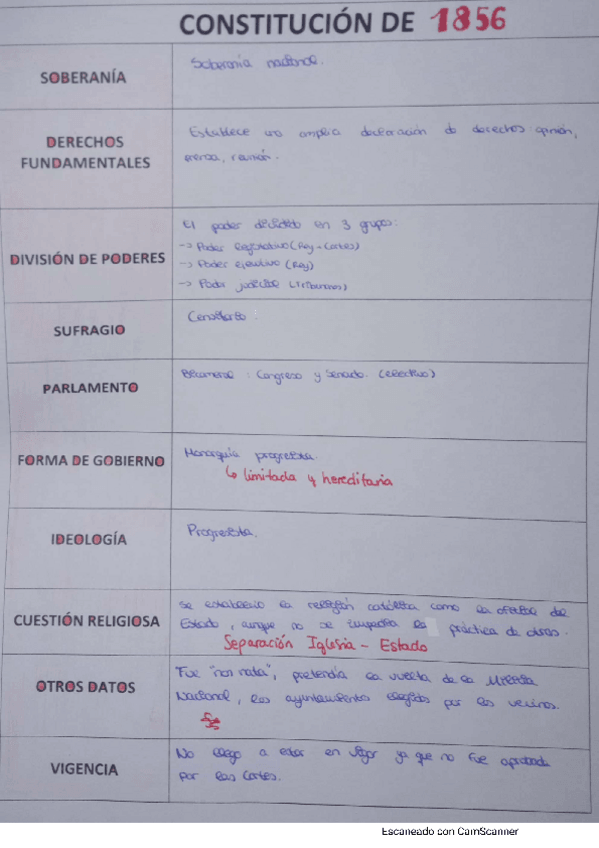 CONSTITUCIÓN DE 1856
SOBERANÍA
Soberanía nacional.
DERECHOS
FUNDAMENTALES
Establece una amplia declaración de derechos: opinión,
prensa, reunión.
DIVISIÓN DE PODERES
El poder dividido en 3 grupos:
-> Poder legislativo (Rey + Cortes)
-> Poder ejecutivo (Rey)
-> Poder judicial (Tribunales)
SUFRAGIO
Censitario.
PARLAMENTO
Bicameral: Congreso y Senado. (electivo)
FORMA DE GOBIERNO
Monarquía progresista.
↳ limitada y hereditaria
IDEOLOGÍA
Progresista.
CUESTIÓN RELIGIOSA
Se estableció la religión católica como la oficial del
Estado, aunque no se impedía la práctica de otras.
Separación Iglesia - Estado
OTROS DATOS
Fue "non nata", pretendía la vuelta de la Milicia
Nacional, los ayuntamientos elegidos por los vecinos.
VIGENCIA
No llegó a estar en vigor ya que no fue aprobada
por las Cortes.
Escaneado con CamScanner